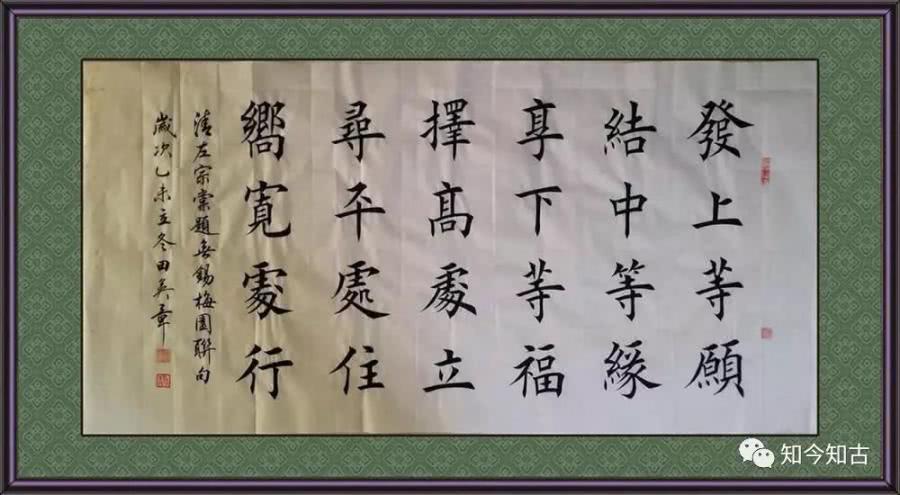 發上等願
結中等緣
享下等福
擇高處立
尋平處住
嚮寬處行
清左宗棠題無錫梅園聯句
歲次乙未立冬田英章
知今知古